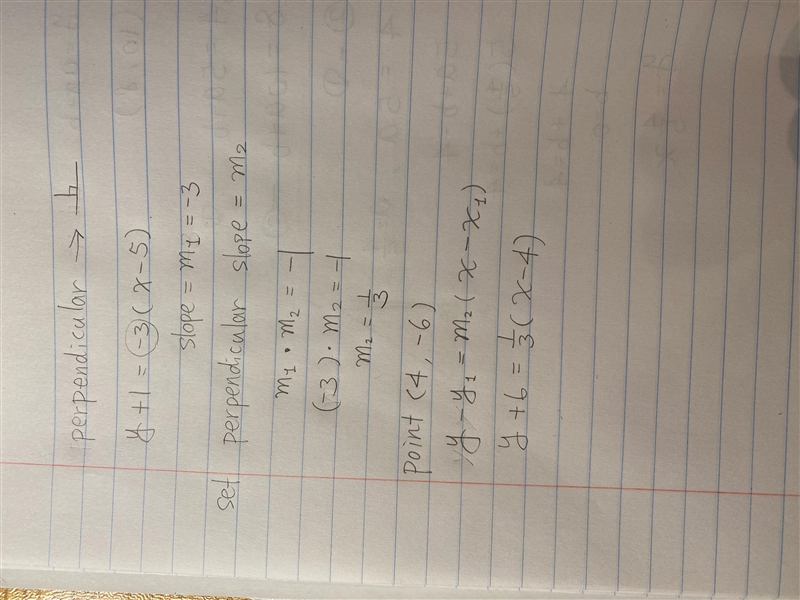 perpendicular → ⊥
y + 1 = (-3)(x - 5)
slope = m₁ = -3
set perpendicular slope = m₂
m₁ · m₂ = -1
(-3) · m₂ = -1
m₂ = 1/3
point (4, -6)
y - y₁ = m₂(x - x₁)
y + 6 = 1/3(x - 4)